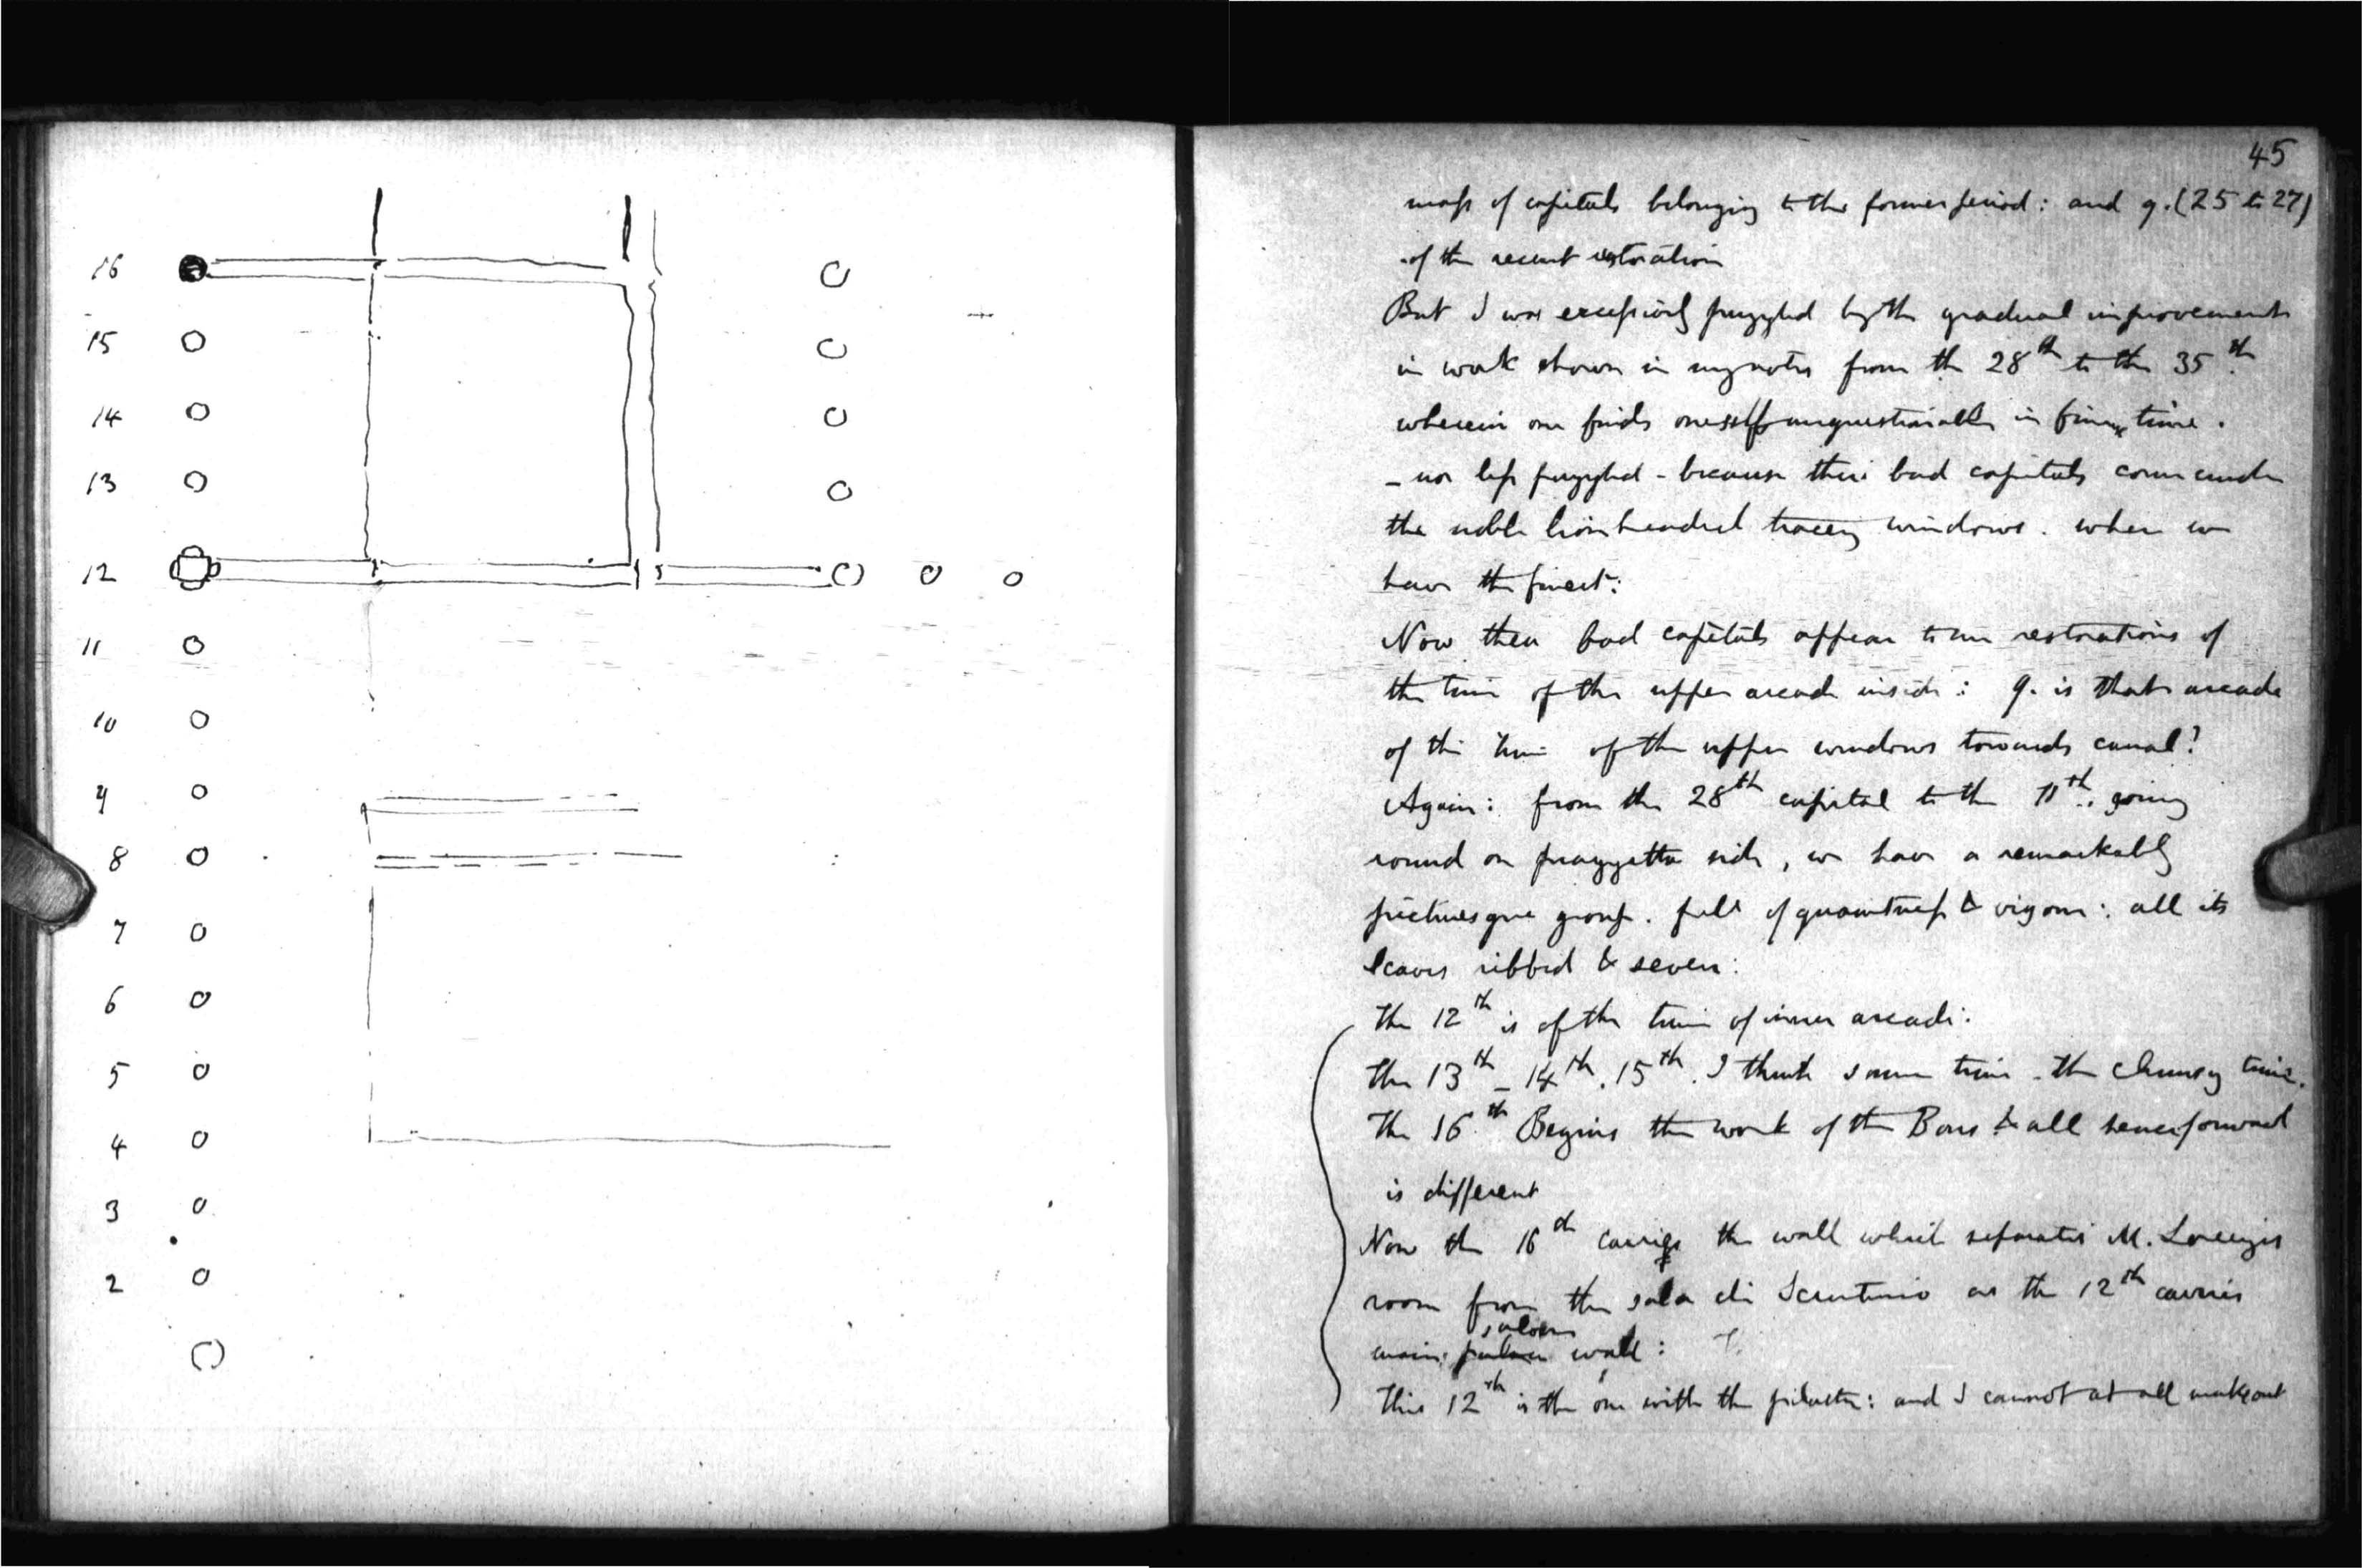 16
15
14
13
12
11
10
9
8
7
6
5
4
3
2
45
mass of capitals belonging to the former period: and 9. (25 to 27)
of the recent restoration
But I was excessively puzzled by the gradual improvement
in work shown in my notes from the 28th to the 35th.
wherein one finds oneself unquestionably in fine time.
- nor less puzzled - because these bad capitals come under
the noble lionheaded tracery windows. where we
have the finest:
Now these bad capitals appear to me restorations of
the time of the upper arcade inside: q. is that arcade
of the time of the upper windows towards canal?
Again: from the 28th capital to the 11th. going
round on piazzetta side, we have a remarkably
picturesque group. full of quaintness & vigour: all its
leaves ribbed & seven:
The 12th is of the time of inner arcade:
The 13th - 14th. 15th. I think same time - the clumsy time.
The 16th Begins the work of the Bons & all henceforward
is different
Now the 16th carries the wall which separates M. Lorenzis
room from the sala di Scrutinio as the 12th carries
saloon
main palace wall:
This 12th is the one with the pilaster: and I cannot at all make out